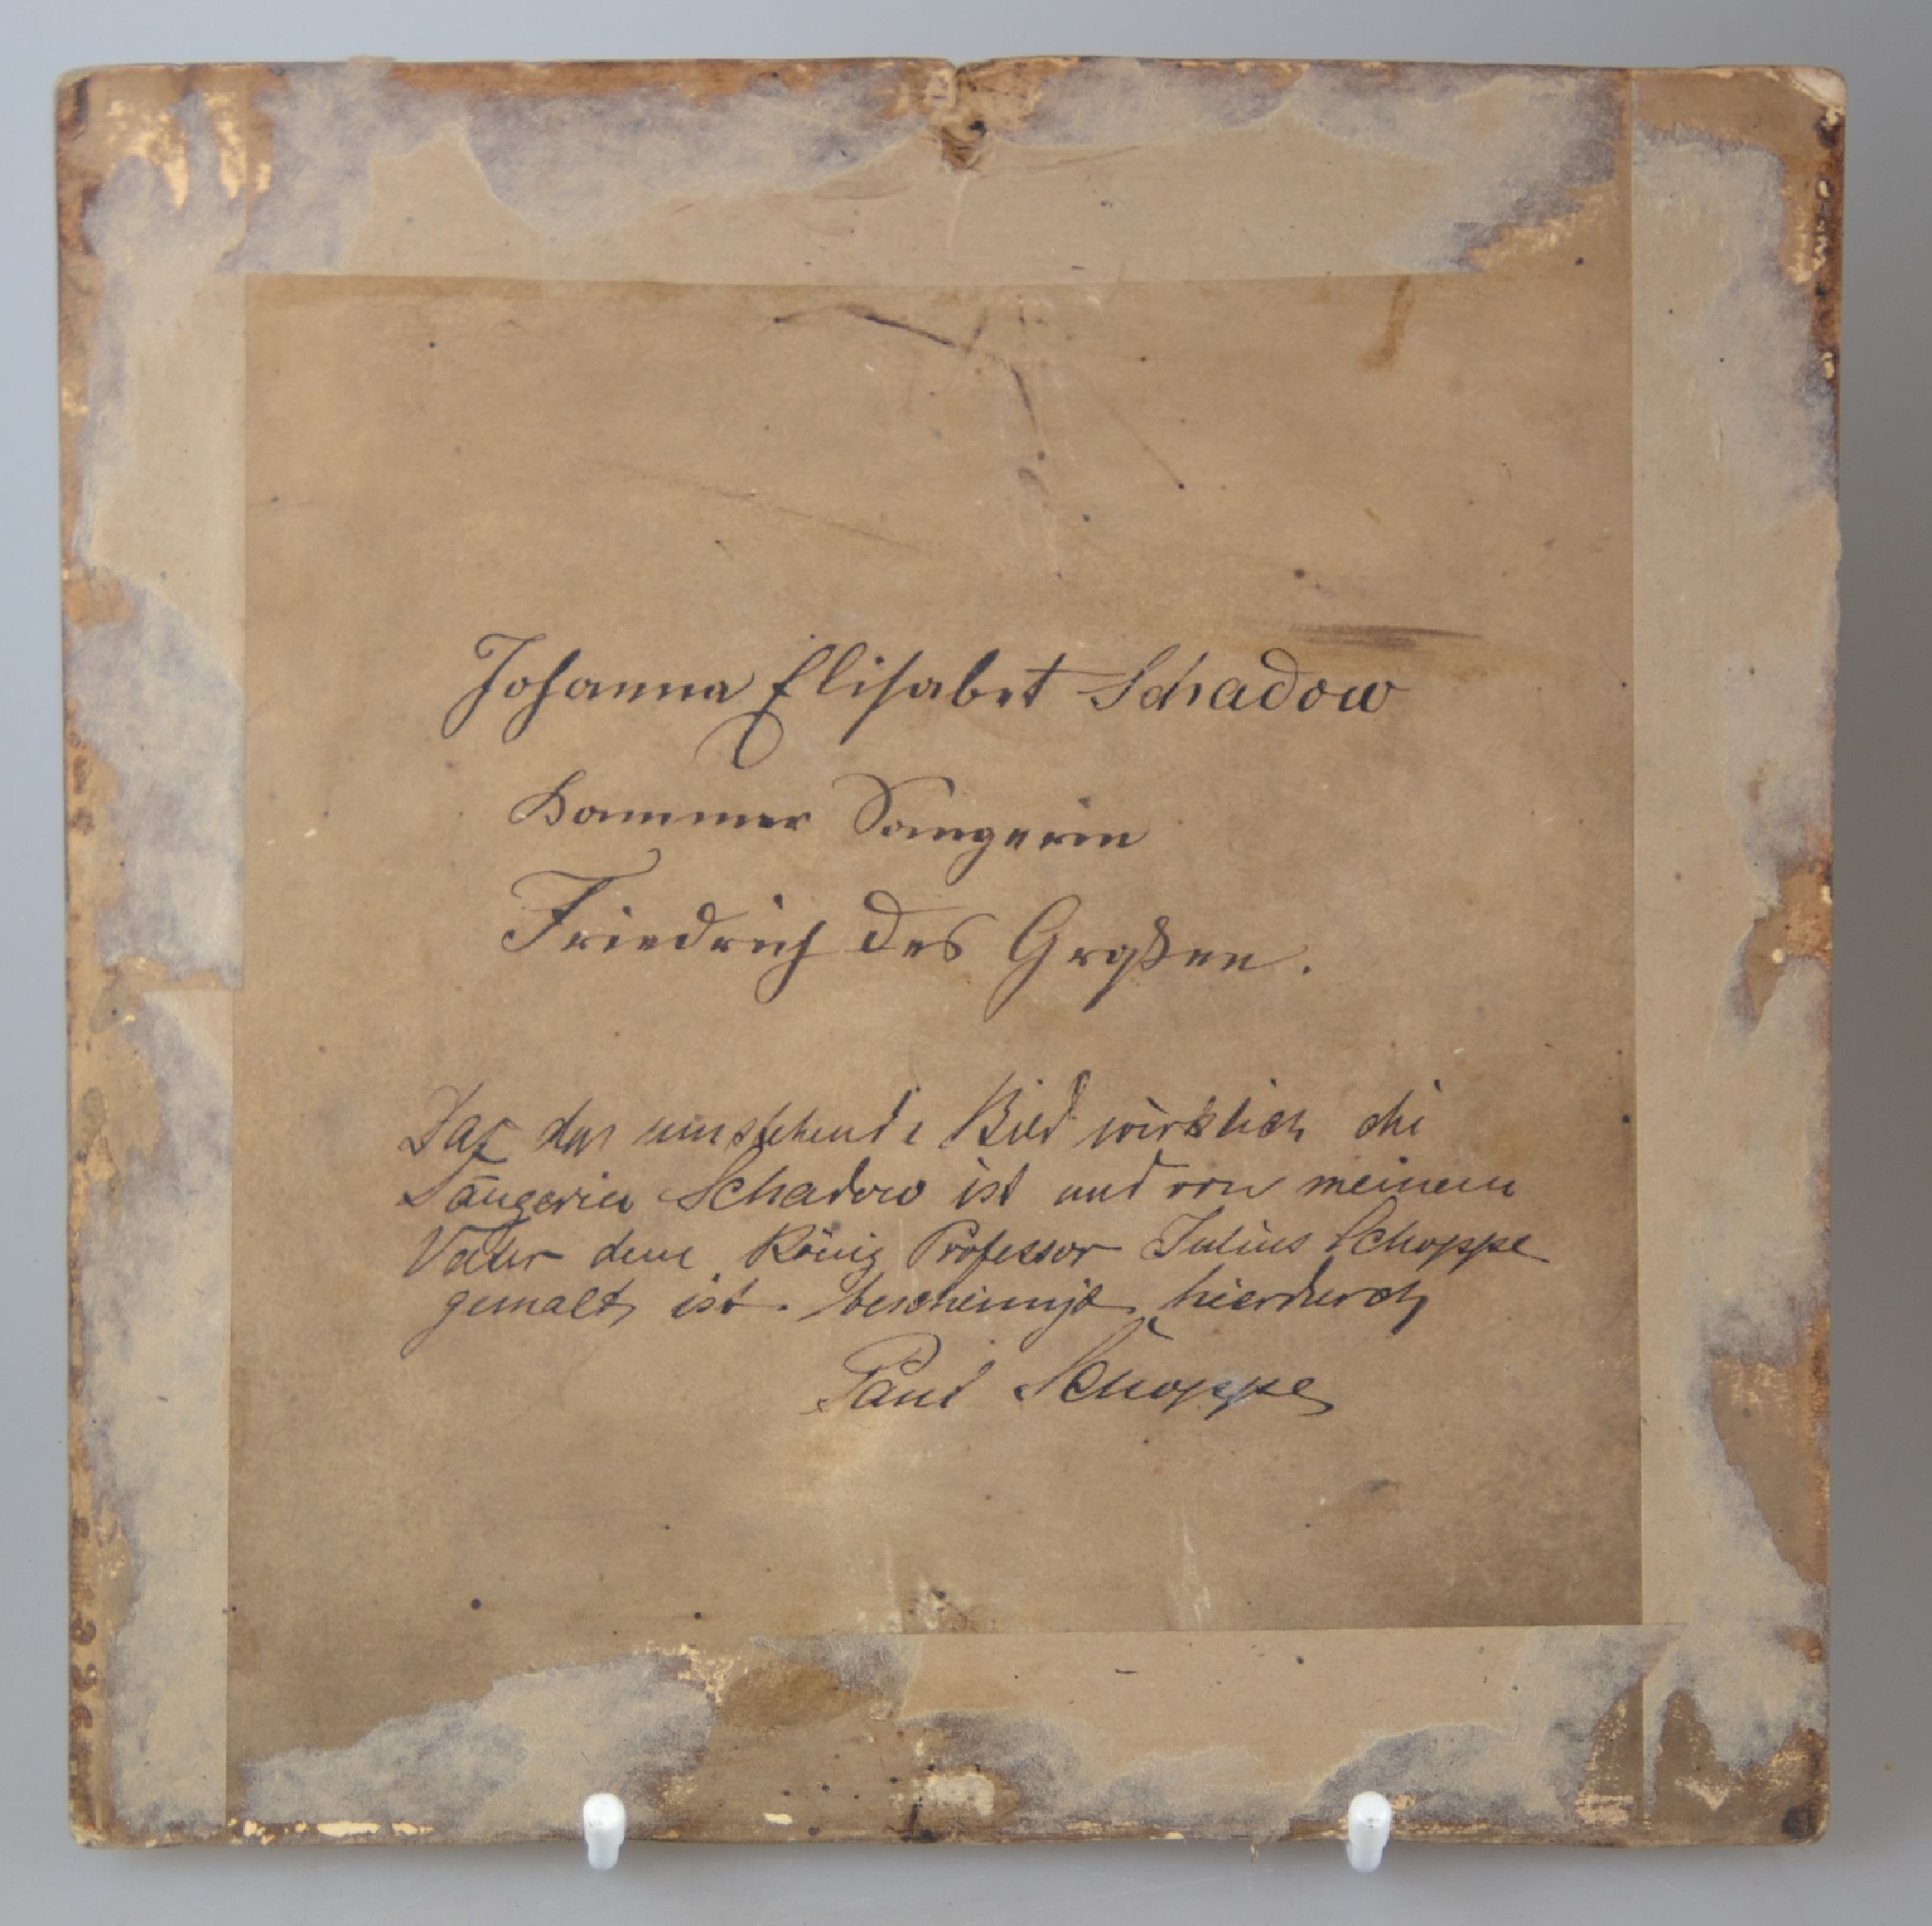 Johanna Elisabet Schadow
Kammer Sangerin
Friedrich des Großen.
Daß das umstehende Bild wirklich die
Sängerin Schadow ist und von meinem
Vater dem König Professor Julius Schoppe
gemalt ist. bescheinigt hierdurch
Paul Schoppe